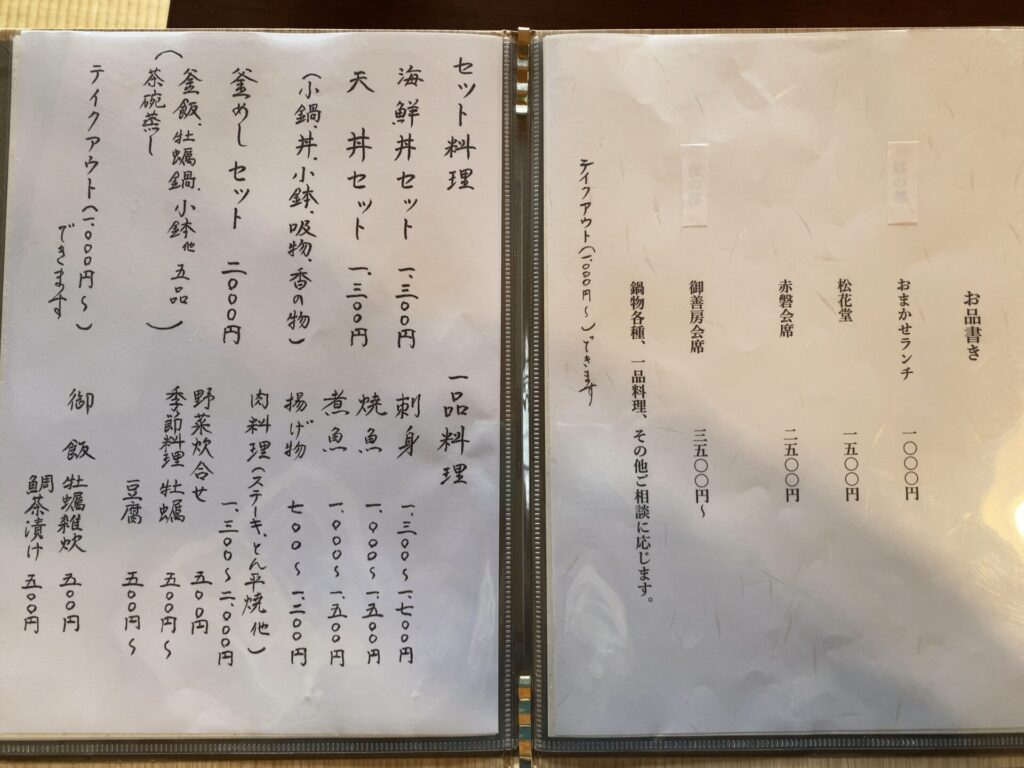 お品書き
おまかせランチ 一〇〇〇円
松花堂 一五〇〇円
赤磐会席 二五〇〇円
御善房会席 三五〇〇円～
鍋物各種、一品料理、その他ご相談に応じます。
テイクアウト(一、〇〇〇円～)できます
セット料理
海鮮丼セット 一、三〇〇円
天丼セット 一、三〇〇円
(小鍋、丼、小鉢、吸物、香の物)
釜めしセット 二〇〇〇円
(釜飯、牡蠣鍋、小鉢他 五品
茶碗蒸し)
テイクアウト(一、〇〇〇円～)
できます
一品料理
刺身 一、三〇〇～一、七〇〇円
焼魚 一、〇〇〇～一、五〇〇円
煮魚 一、〇〇〇～一、五〇〇円
揚げ物 七〇〇～一、二〇〇円
肉料理(ステーキ、とん平焼他)
一、三〇〇～二、〇〇〇円
野菜炊合せ 五〇〇円
季節料理 牡蠣 五〇〇円～
豆腐 五〇〇円～
御飯 牡蠣雑炊 五〇〇円
鯛茶漬け 五〇〇円